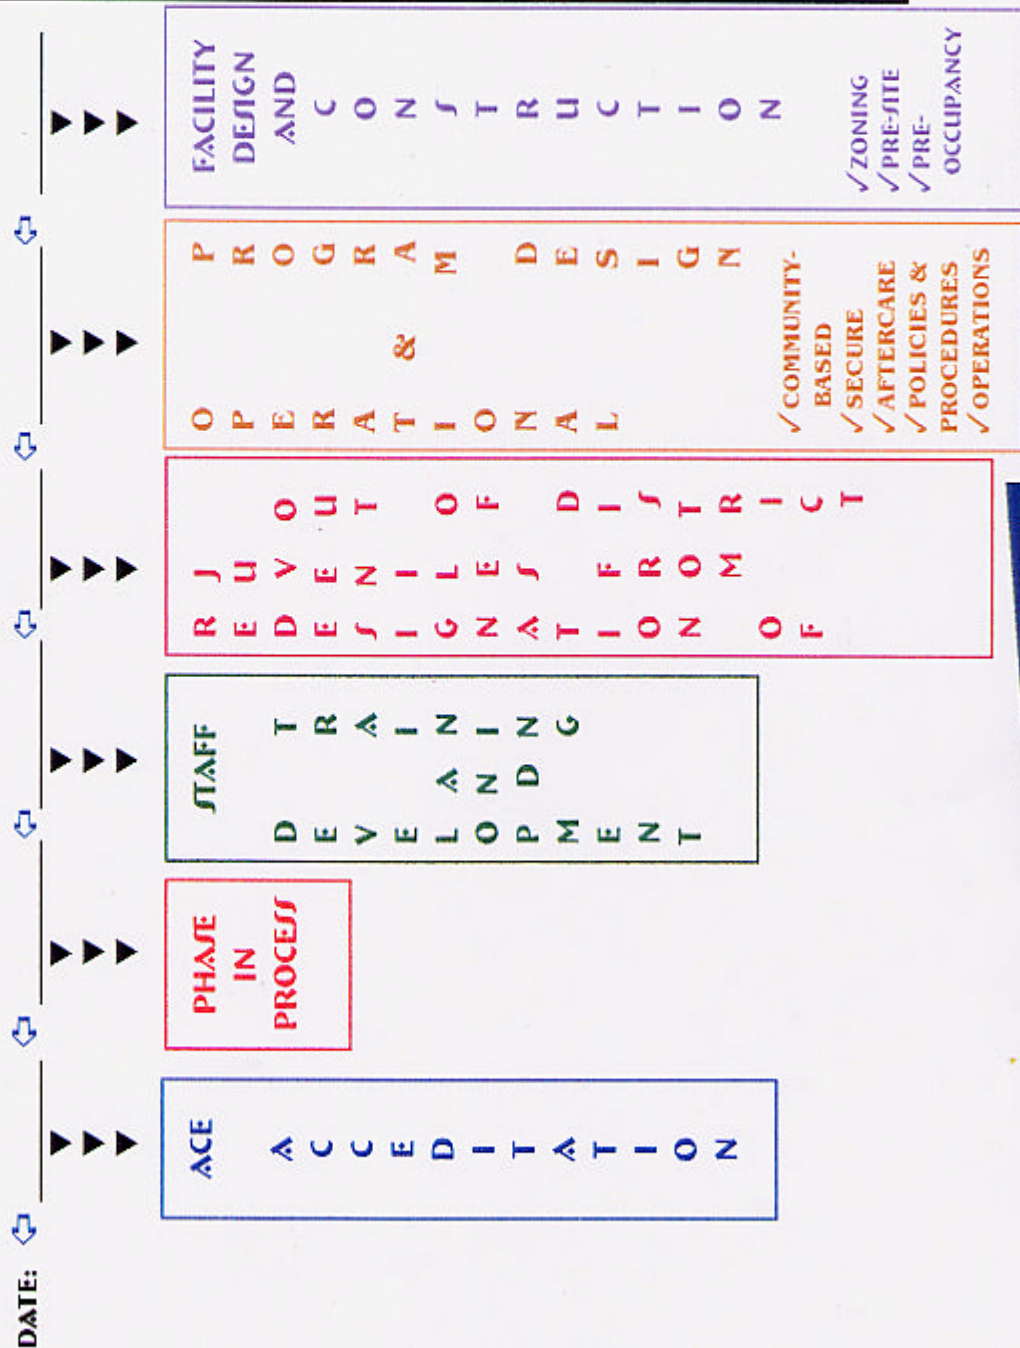 DATE:
ACE
ACCEDITATION
PHASE
IN
PROCESS
STAFF
DEVELOPMENT
AND
TRAINING
REDESIGNATION OF
JUVENILES FROM
OUT OF DISTRICT
OPERATIONAL
&
PROGRAM DESIGN
✓COMMUNITY-
BASED
✓SECURE
✓AFTERCARE
✓POLICIES &
PROCEDURES
✓OPERATIONS
FACILITY
DESIGN
AND
CONSTRUCTION
✓ZONING
✓PRE-SITE
✓PRE-
OCCUPANCY